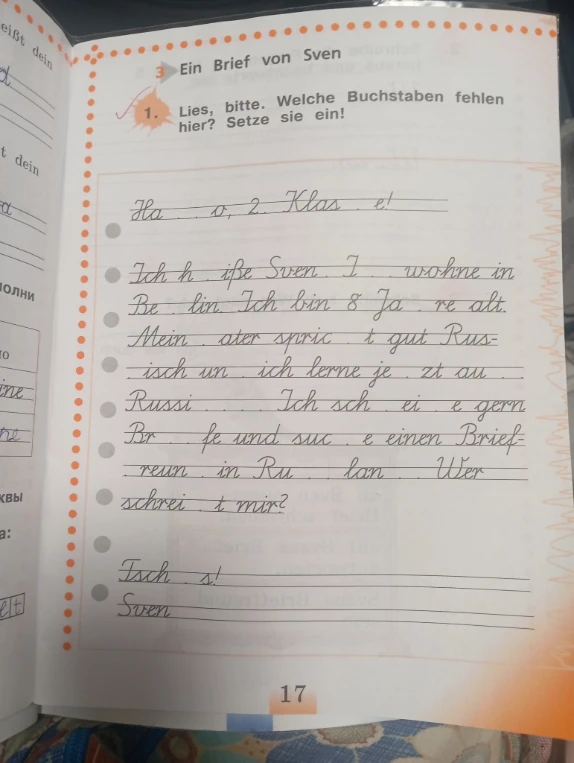 eißt dein
t dein
олни
ine
квы
а:
elt
3 Ein Brief von Sven
1. Lies, bitte. Welche Buchstaben fehlen
hier? Setze sie ein!
Ha o, 2. Klas e!
Ich h iße Sven. I wohne in
Be lin. Ich bin 8 Ja re alt.
Mein ater spric t gut Rus-
isch un ich lerne je zt au
Russi . Ich sch ei e gern
Br fe und suc e einen Brief-
reun in Ru lan . Wer
schrei t mir?
Tsch s!
Sven
17